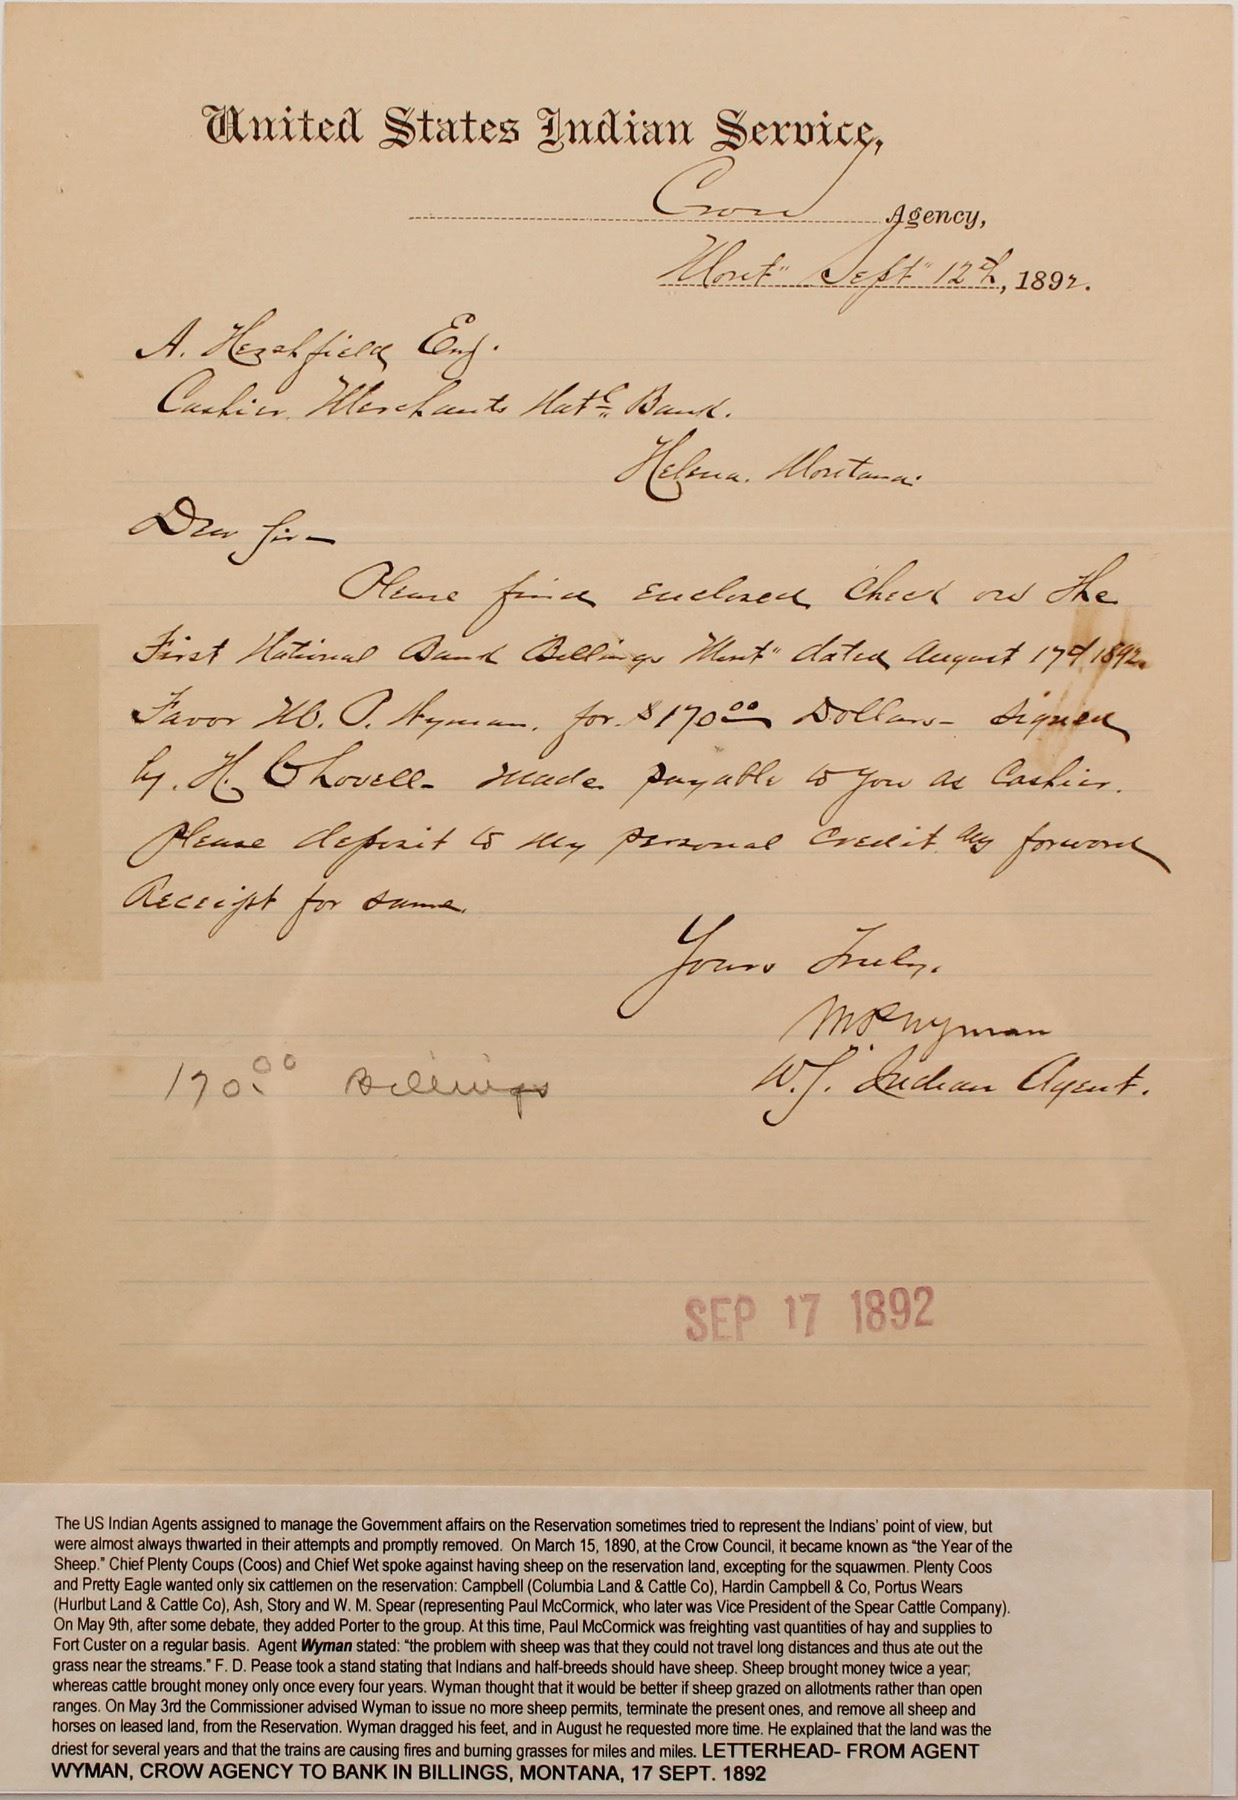 United States Indian Service,
Crow Agency,
Mont" Sept" 12th, 1892.
A. Hershfield Esq.
Cashier Merchants Natl Bank.
Helena. Montana.
Dear Sir—
Please find enclosed check on the
First National Bank Billings Mont" dated August 17th 1892.
Favor M. P. Wyman. for $170.00 Dollars— signed
by. H. C Lovell— made payable to you as Cashier.
Please deposit to my personal credit and forward
Receipt for same.
Yours Truly.
M P Wyman
U. S. Indian Agent.
170.00 Billings
SEP 17 1892
The US Indian Agents assigned to manage the Government affairs on the Reservation sometimes tried to represent the Indians' point of view, but
were almost always thwarted in their attempts and promptly removed. On March 15, 1890, at the Crow Council, it became known as "the Year of the
Sheep." Chief Plenty Coups (Coos) and Chief Wet spoke against having sheep on the reservation land, excepting for the squawmen. Plenty Coos
and Pretty Eagle wanted only six cattlemen on the reservation: Campbell (Columbia Land & Cattle Co), Hardin Campbell & Co, Portus Wears
(Hurlbut Land & Cattle Co), Ash, Story and W. M. Spear (representing Paul McCormick, who later was Vice President of the Spear Cattle Company).
On May 9th, after some debate, they added Porter to the group. At this time, Paul McCormick was freighting vast quantities of hay and supplies to
Fort Custer on a regular basis. Agent Wyman stated: "the problem with sheep was that they could not travel long distances and thus ate out the
grass near the streams." F. D. Pease took a stand stating that Indians and half-breeds should have sheep. Sheep brought money twice a year;
whereas cattle brought money only once every four years. Wyman thought that it would be better if sheep grazed on allotments rather than open
ranges. On May 3rd the Commissioner advised Wyman to issue no more sheep permits, terminate the present ones, and remove all sheep and
horses on leased land, from the Reservation. Wyman dragged his feet, and in August he requested more time. He explained that the land was the
driest for several years and that the trains are causing fires and burning grasses for miles and miles. LETTERHEAD- FROM AGENT
WYMAN, CROW AGENCY TO BANK IN BILLINGS, MONTANA, 17 SEPT. 1892